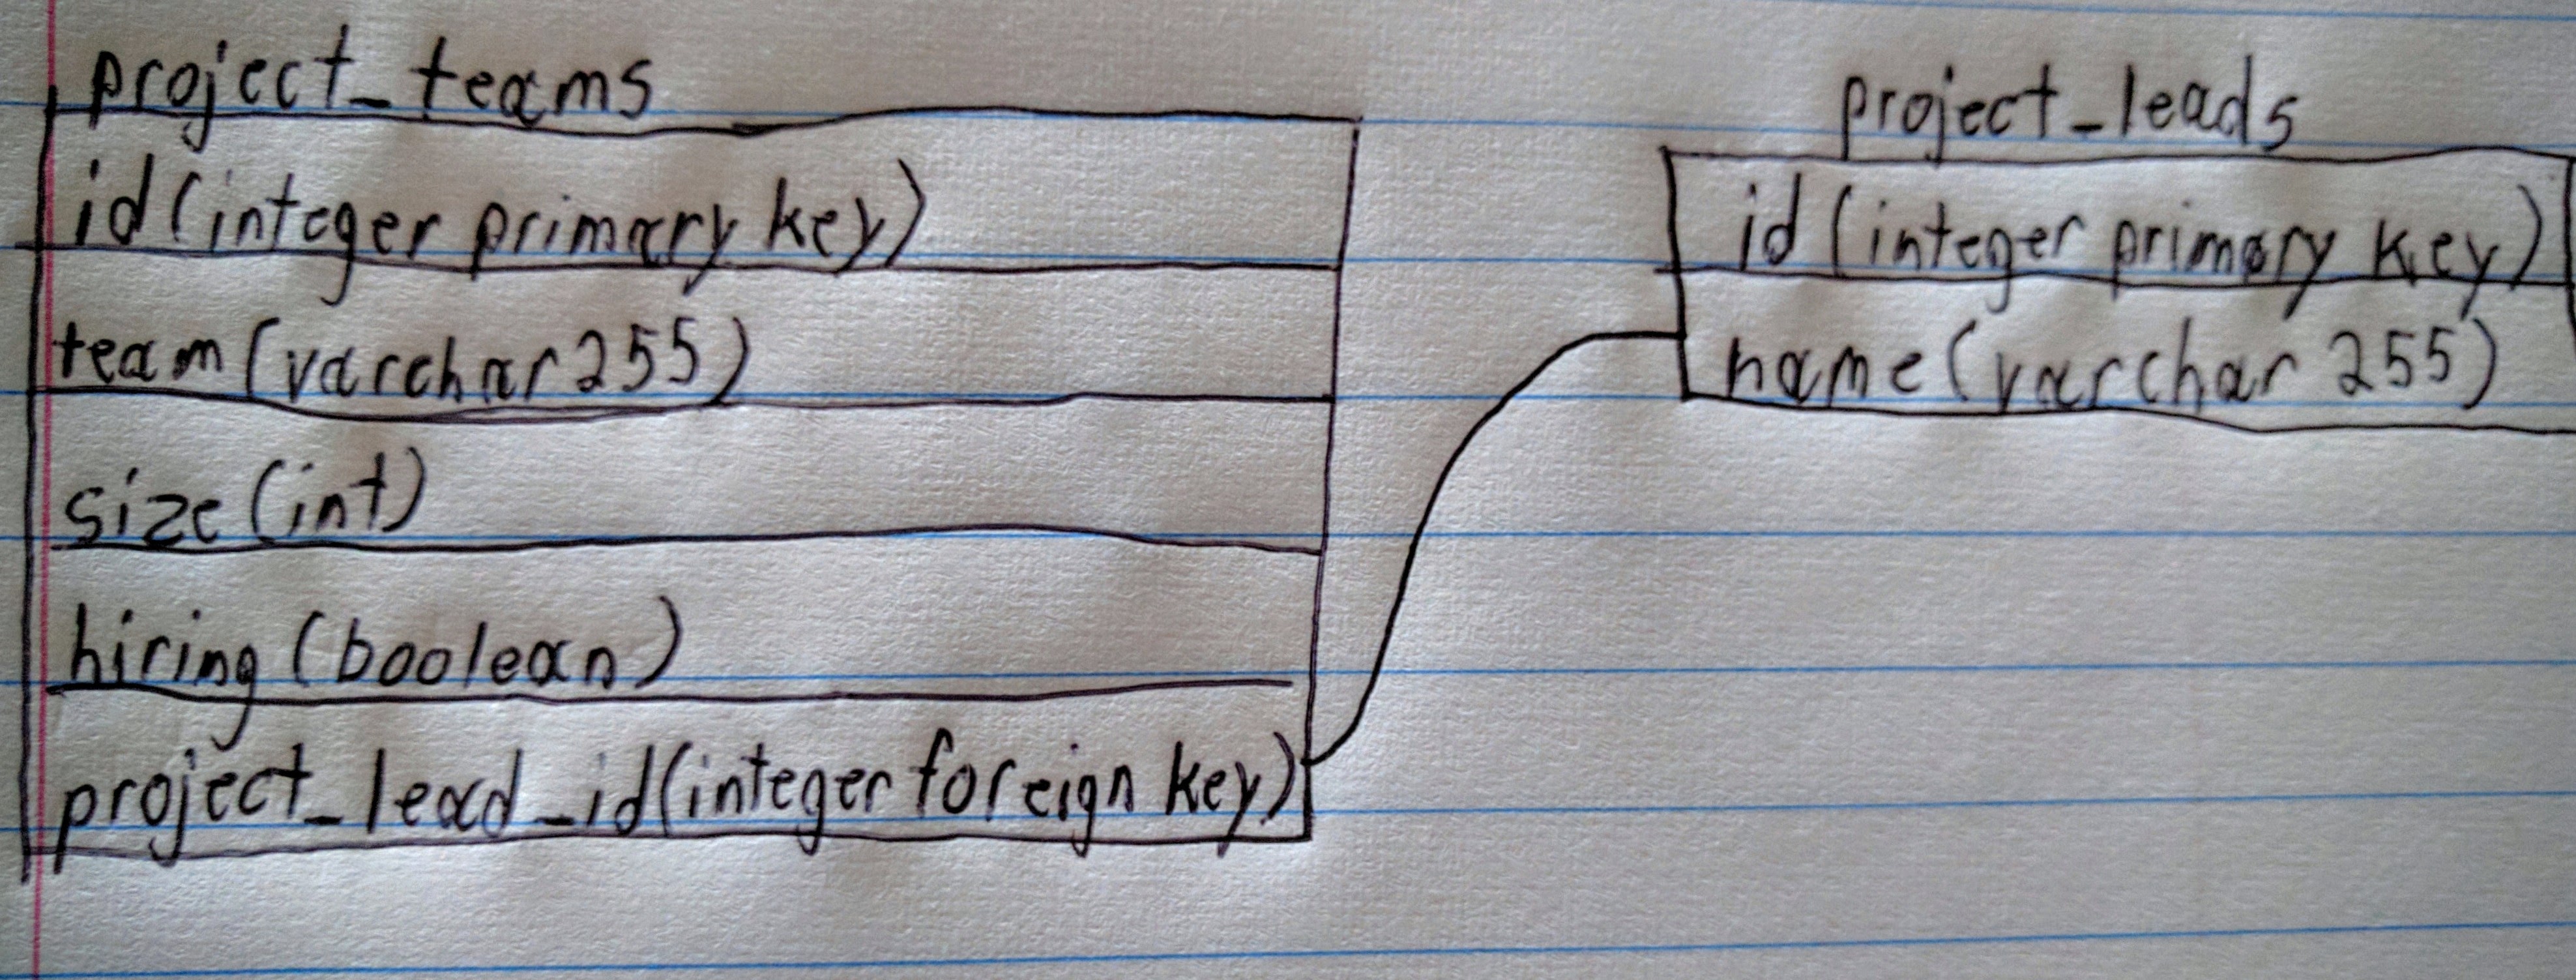 project_teams
id (integer primary key)
team (varchar 255)
size (int)
hiring (boolean)
project_lead_id (integer foreign key)
project_leads
id (integer primary key)
name (varchar 255)